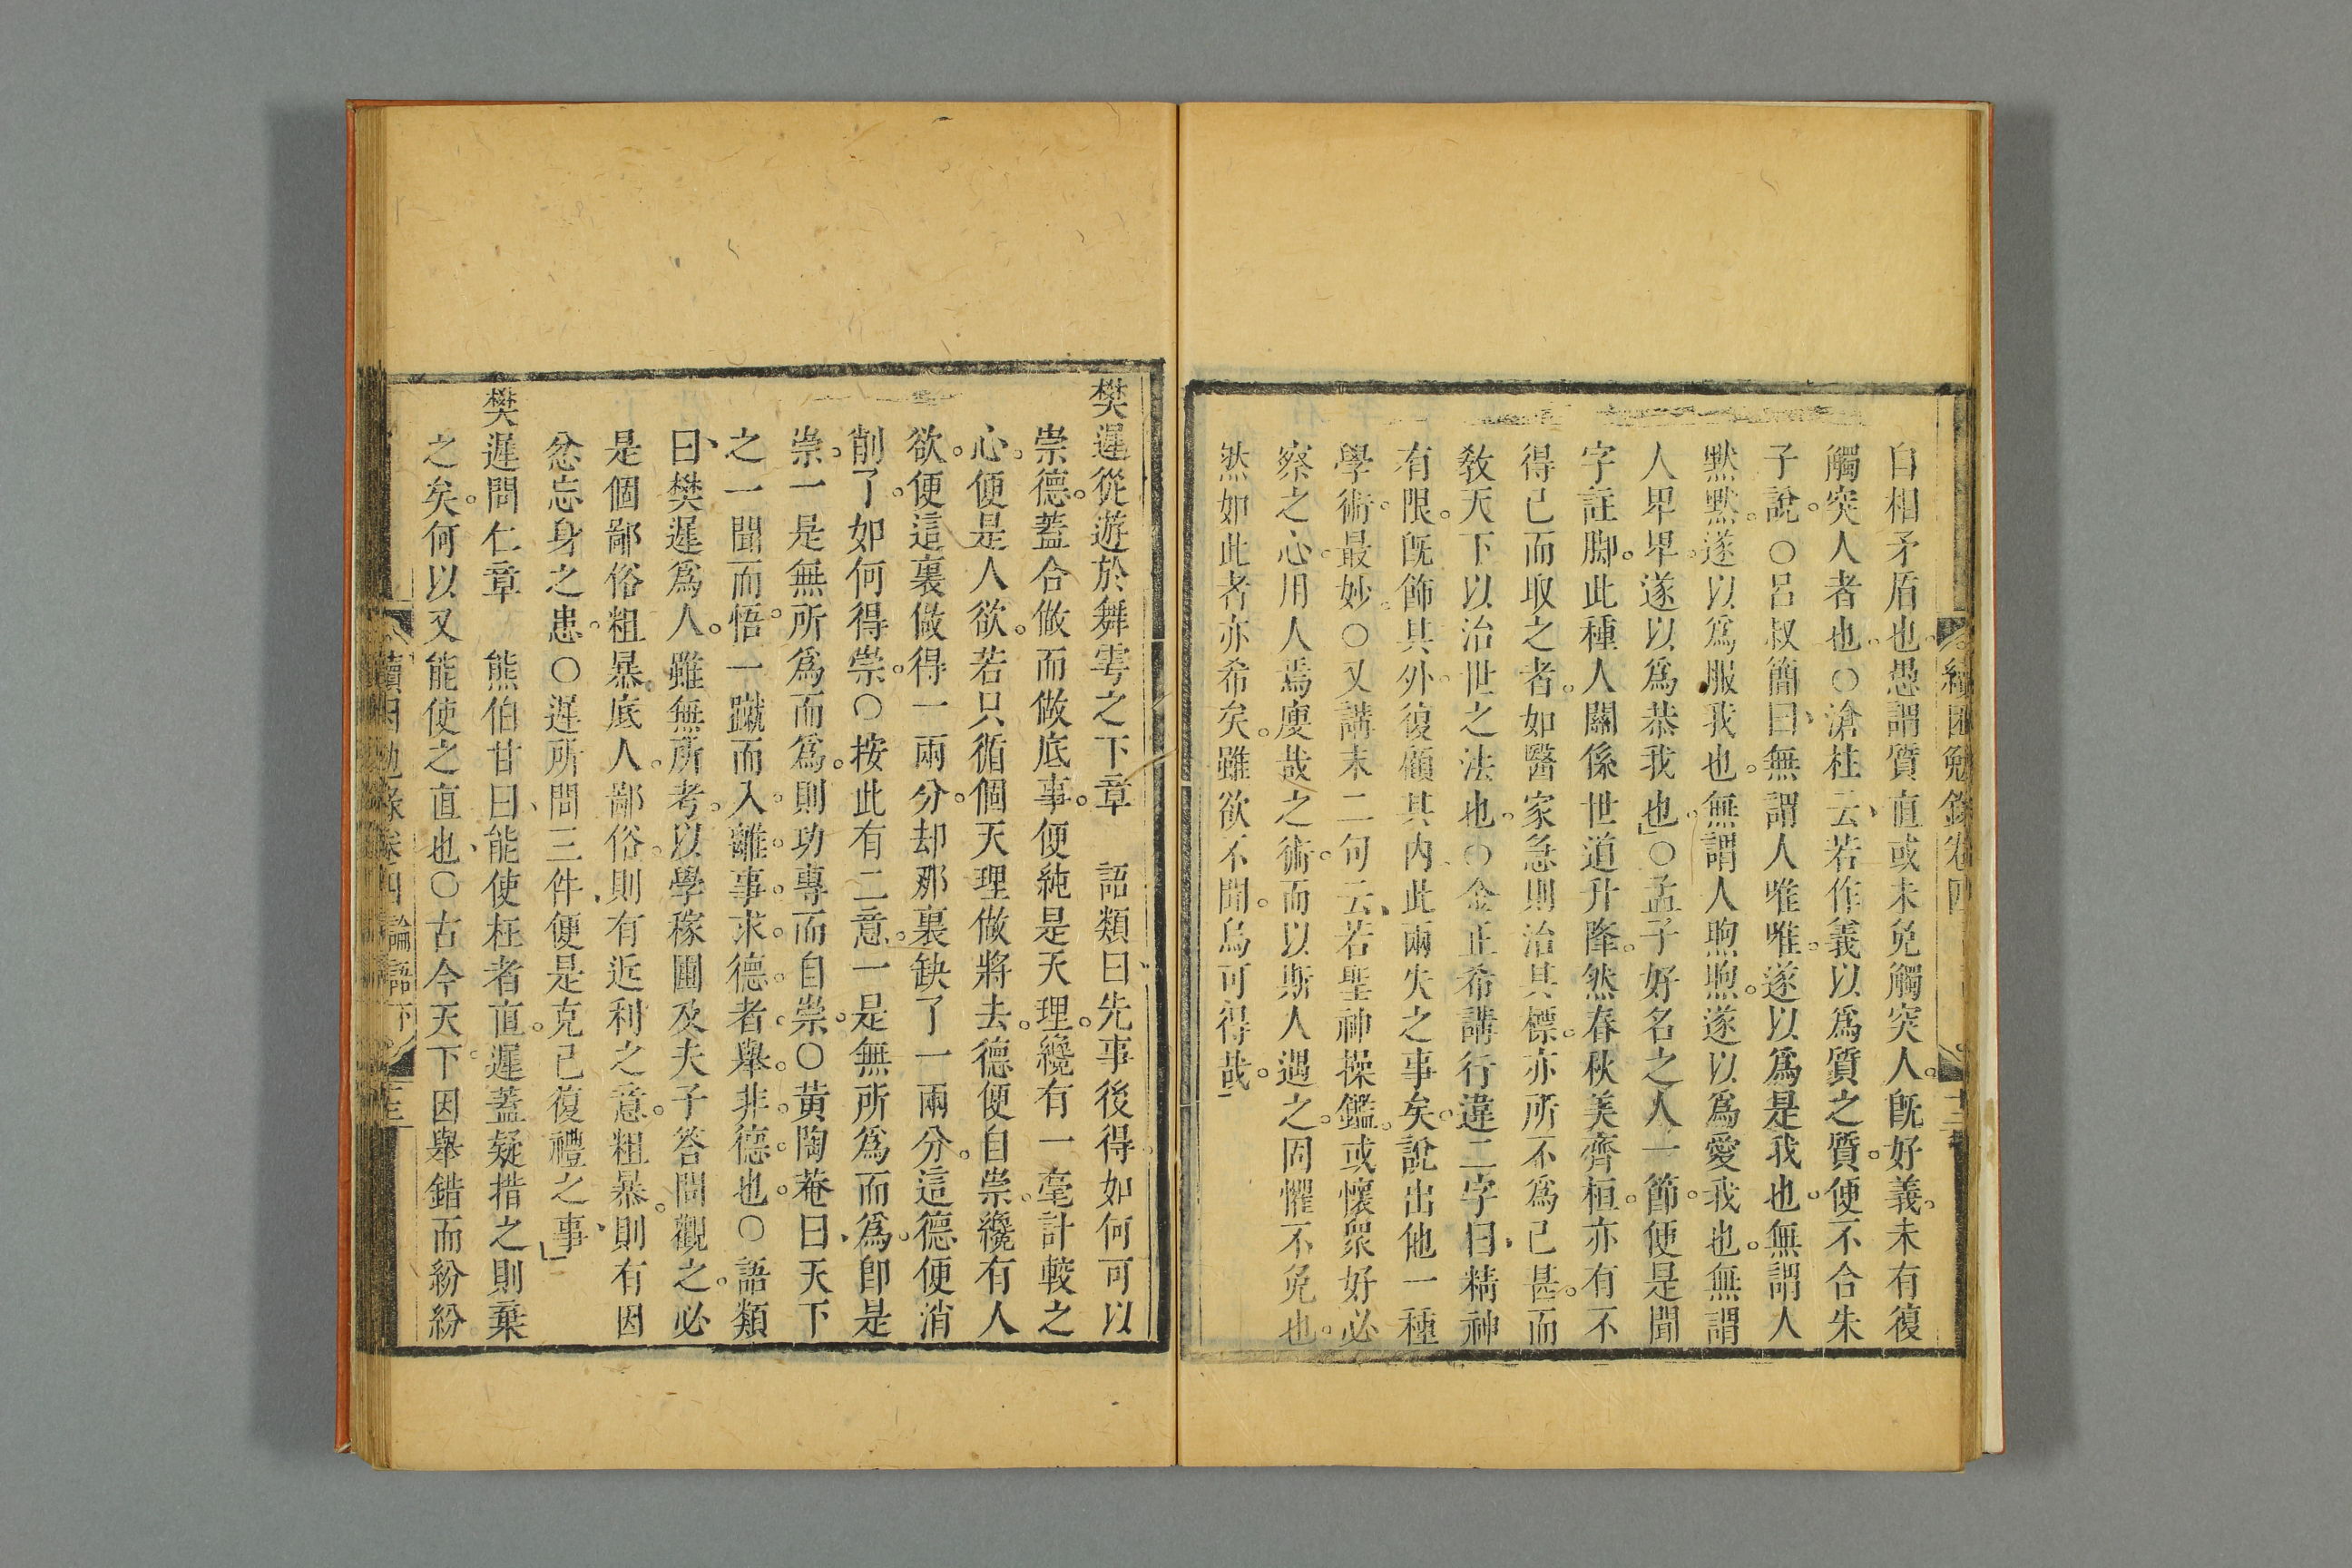 續困勉錄卷四
自相矛盾也愚謂質直或未免觸突人。既好義。未有復
觸突人者也。○滄柱云、若作義以為質之質。便不合朱
子說。○呂叔簡曰、無謂人唯唯。遂以為是我也。無謂人
默默。遂以為服我也。無謂人煦煦。遂以為愛我也。無謂
人卑卑。遂以為恭我也。」○孟子好名之人一節。便是聞
字註脚。此種人關係世道升降。然春秋美齊桓。亦有不
得已而取之者。如醫家急則治其標。亦所不為已甚。而
教天下以治世之法也。○金正希講行違二字曰、精神
有限。既飾其外。復顧其內。此兩失之事矣。說出他一種
學術。最妙。○又講末二句云、若聖神操鑑。或懷眾好必
察之心。用人焉廋哉之術。而以斯人遇之。固懼不免也。
然如此者亦希矣。雖欲不聞。烏可得哉」
樊遲從遊於舞雩之下章　語類曰、先事後得。如何可以
崇德。蓋合做而做底事。便純是天理。纔有一毫計較之
心。便是人欲。若只循個天理做將去。德便自崇。纔有人
欲。便這裏做得一兩分。却那裏缺了一兩分。這德便消
削了。如何得崇。○按此有二意。一是無所為而為。即是
崇。一是無所為而為。則功專而自崇。○黄陶菴曰、天下
之一聞而悟。一蹴而入。離。事。求。德。者。舉。非。德。也。○語類
曰、樊遲為人。雖無所考。以學稼圃及夫子答問觀之。必
是個鄙俗粗暴底人。鄙俗。則有近利之意。粗暴。則有因
忿忘身之患。○遲所問三件、便是克己復禮之事、」
樊遲問仁章　熊伯甘曰、能使枉者直。遲蓋疑措之則棄
之矣。何以又能使之直也、○古今天下。因舉錯而紛紛。
續困勉錄卷四　論語下